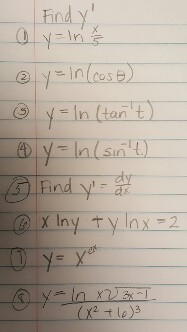 Find y'
① y = ln x/5
② y = ln(cosθ)
③ y = ln(tan⁻¹t)
④ y = ln(sin⁻¹t.)
⑤ Find y' = dy/dx
⑥ x ln y + y ln x = 2
⑦ y = x^ex
⑧ y = ln x²√3x-1 / (x² + 6)³